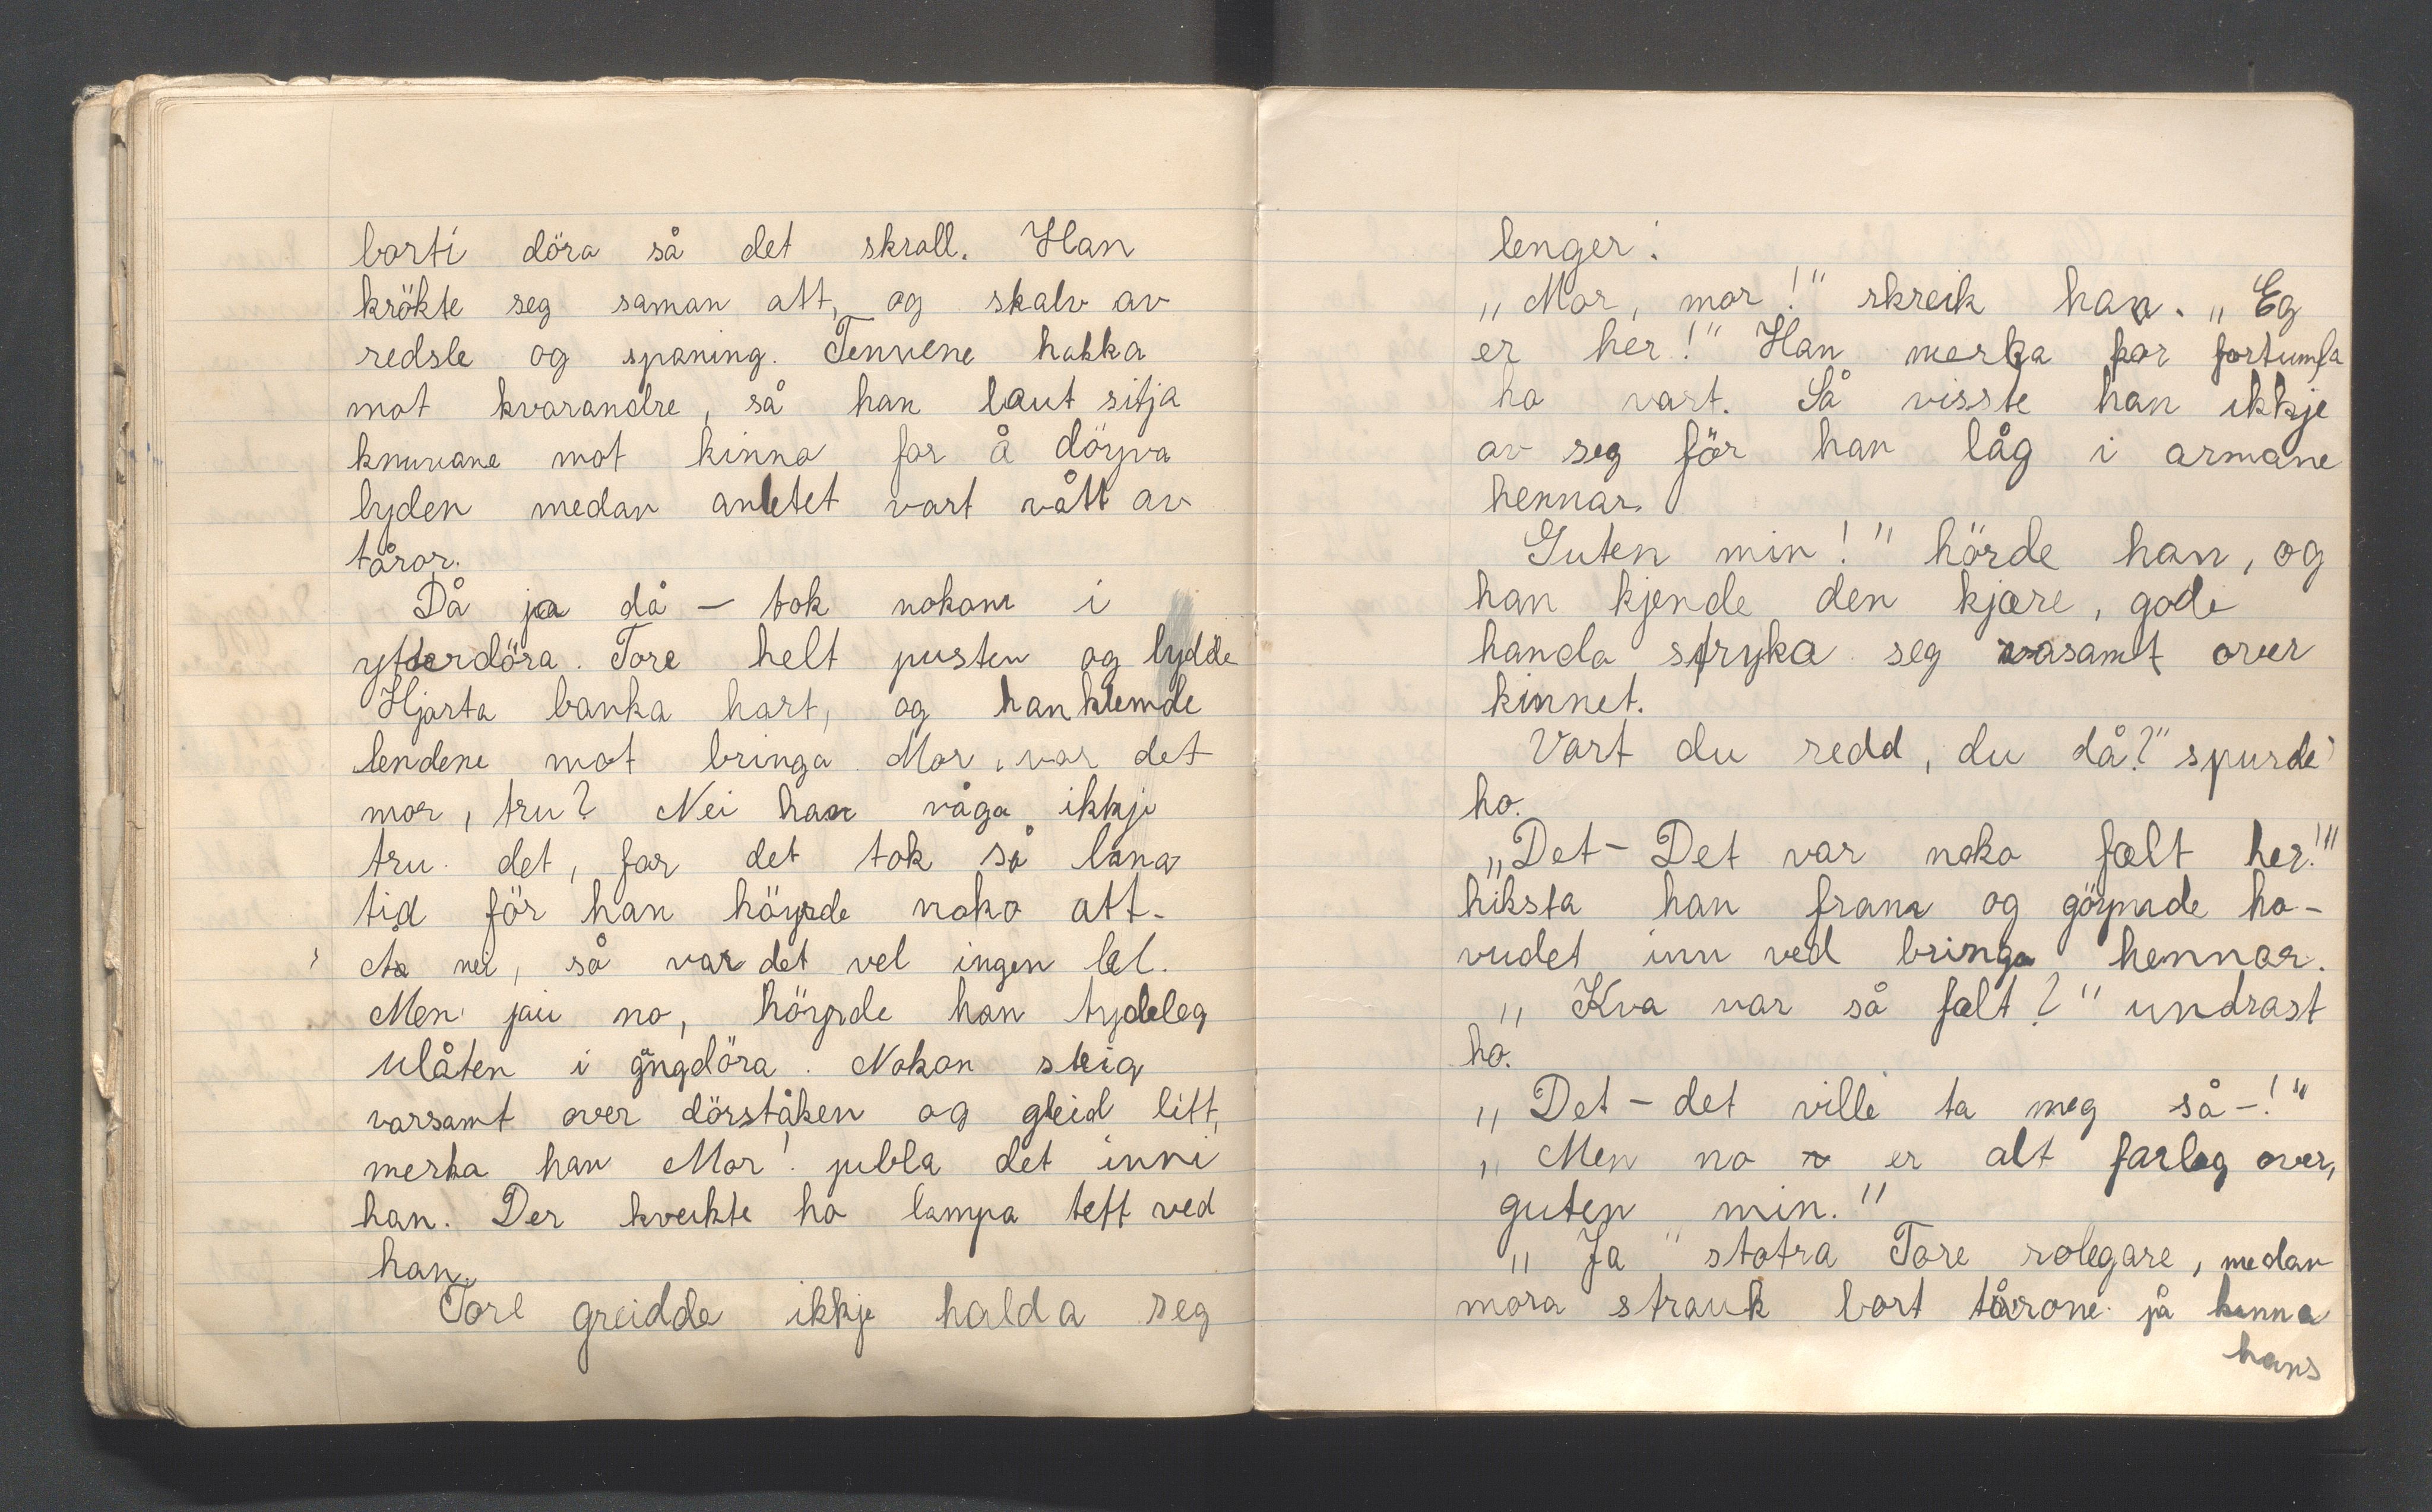 borti döra så det skrall. Han
krökte seg saman att, og skalv av
redsle og spaning. Tennene hakka
mot kvarandre, så han laut sitja
knuvane mot kinna for å döyva
lyden medan anletet vart vått av
tåror.
Då ja då - tok nokon i
ytterdöra. Tore helt pusten og lydde
Hjarta banka hart, og han klemde
lendene mot bringa. Mor, var det
mor, tru? Nei han våga ikkje
tru det, for det tok så lang
tid för han höyrde noko att-
Å nei, så var det vel ingen lel.
Men jau no, höyrde han tydeleg
ulåten i gångdöra. Nokon steig
varsamt over dörståken og gleid litt,
merka han Mor! jubla det inni
han. Der kveikte ho lampa tett ved
han.
Tore greidde ikkje halda seg
lenger:
„Mor, mor!" skreik han. „Eg
er her!" Han merka kor fortumla
ho vart. Så visste han ikkje
av seg för han låg i armane
hennar.
Guten min!" hörde han, og
han kjende den kjære, gode
handa stryka seg vasamt over
kinnet.
Vart du redd, du då?" spurde
ho.
„Det- Det var noko fælt her!"
hiksta han fram og göymde ho-
vudet inn ved bringa hennar.
„Kva var så fælt?" undrast
ho.
„Det - det ville ta meg så-!"
„Men no er alt farleg over,
guten min."
„Ja" stotra Tore rolegare, medan
mora strauk bort tårone på kinna
hans